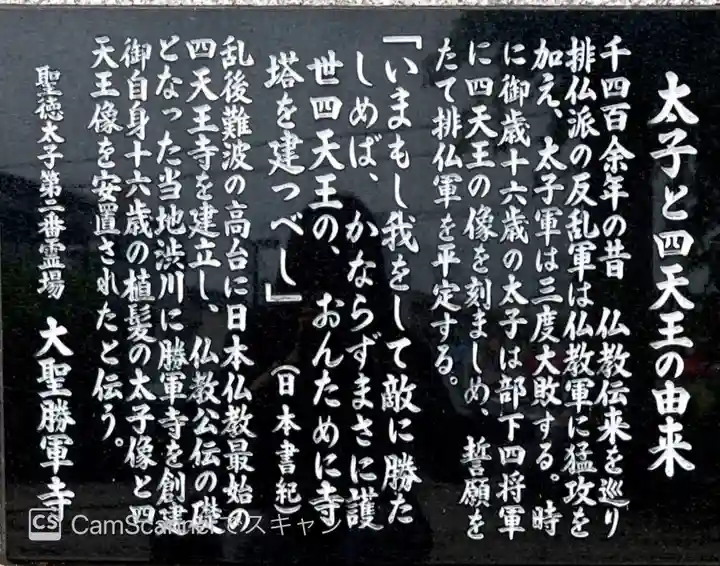 太子と四天王の由来
千四百余年の昔　仏教伝来を巡り
排仏派の反乱軍は仏教軍に猛攻を
加え、太子軍は三度大敗する。時
に御歳十六歳の太子は部下四将軍
に四天王の像を刻ましめ、誓願を
たて排仏軍を平定する。
「いまもし我をして敵に勝た
しめば、かならずまさに護
世四天王の、おんために寺
塔を建つべし」（日本書紀）
乱後難波の高台に日本仏教最始の
四天王寺を建立し、仏教公伝の礎
となった当地渋川に勝軍寺を創建
御自身十六歳の植髪の太子像と四
天王像を安置されたと伝う。
聖徳太子第二番霊場　大聖勝軍寺
CS CamScannerでスキャン